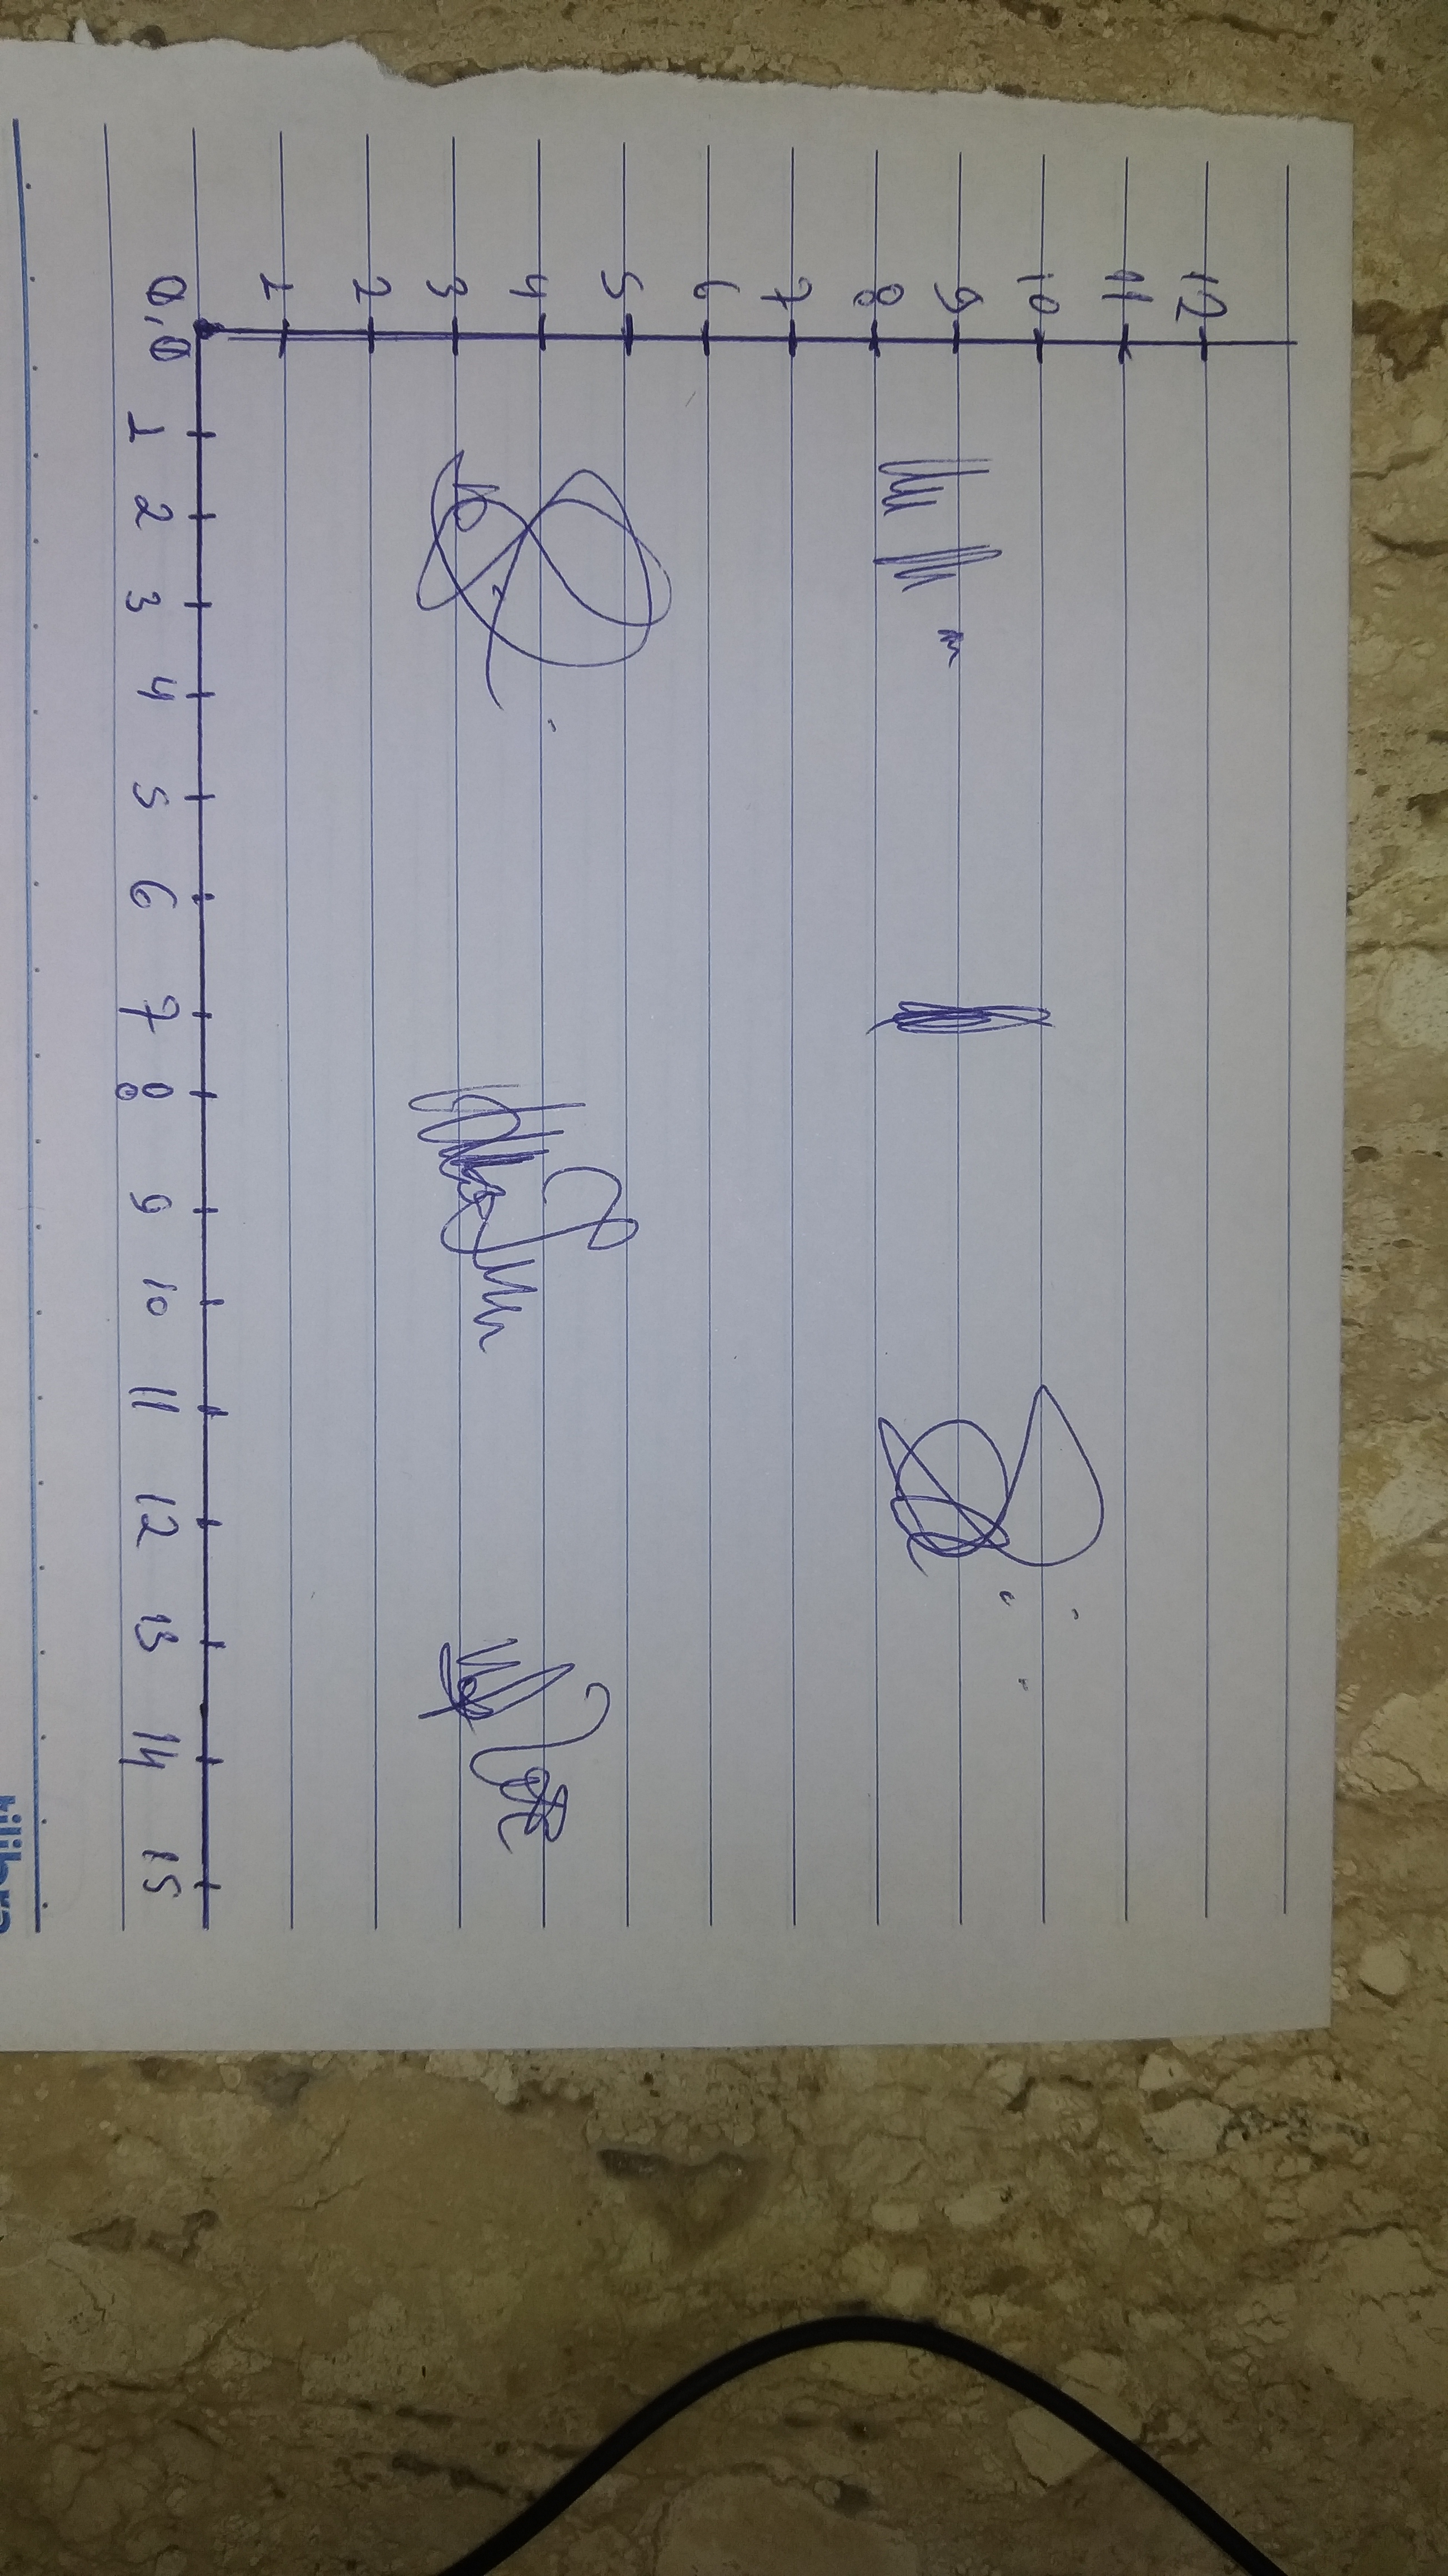 12
11
10
9
8
7
6
5
4
3
2
1
0,0 1 2 3 4 5 6 7 8 9 10 11 12 13 14 15
tilibra